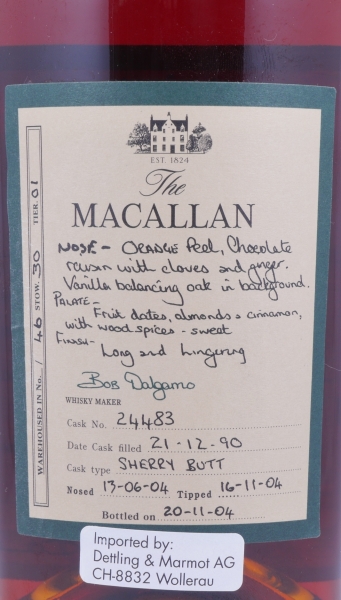 EST. 1824
The
MACALLAN
NOSE - ORANGE Peel, Chocolate
raisin with cloves and ginger.
Vanilla balancing oak in background.
PALATE -
Fruit dates, almonds & cinnamon,
with wood spices - sweet
FINISH -
Long and Lingering
Bob Dalgarno
WHISKY MAKER
Cask No. 24483
Date Cask filled 21-12-90
Cask type SHERRY BUTT
Nosed 13-06-04 Tipped 16-11-04
Bottled on 20-11-04
WAREHOUSED IN No. / 46 STOW. 30 TIER. 01
Imported by:
Dettling & Marmot AG
CH-8832 Wollerau